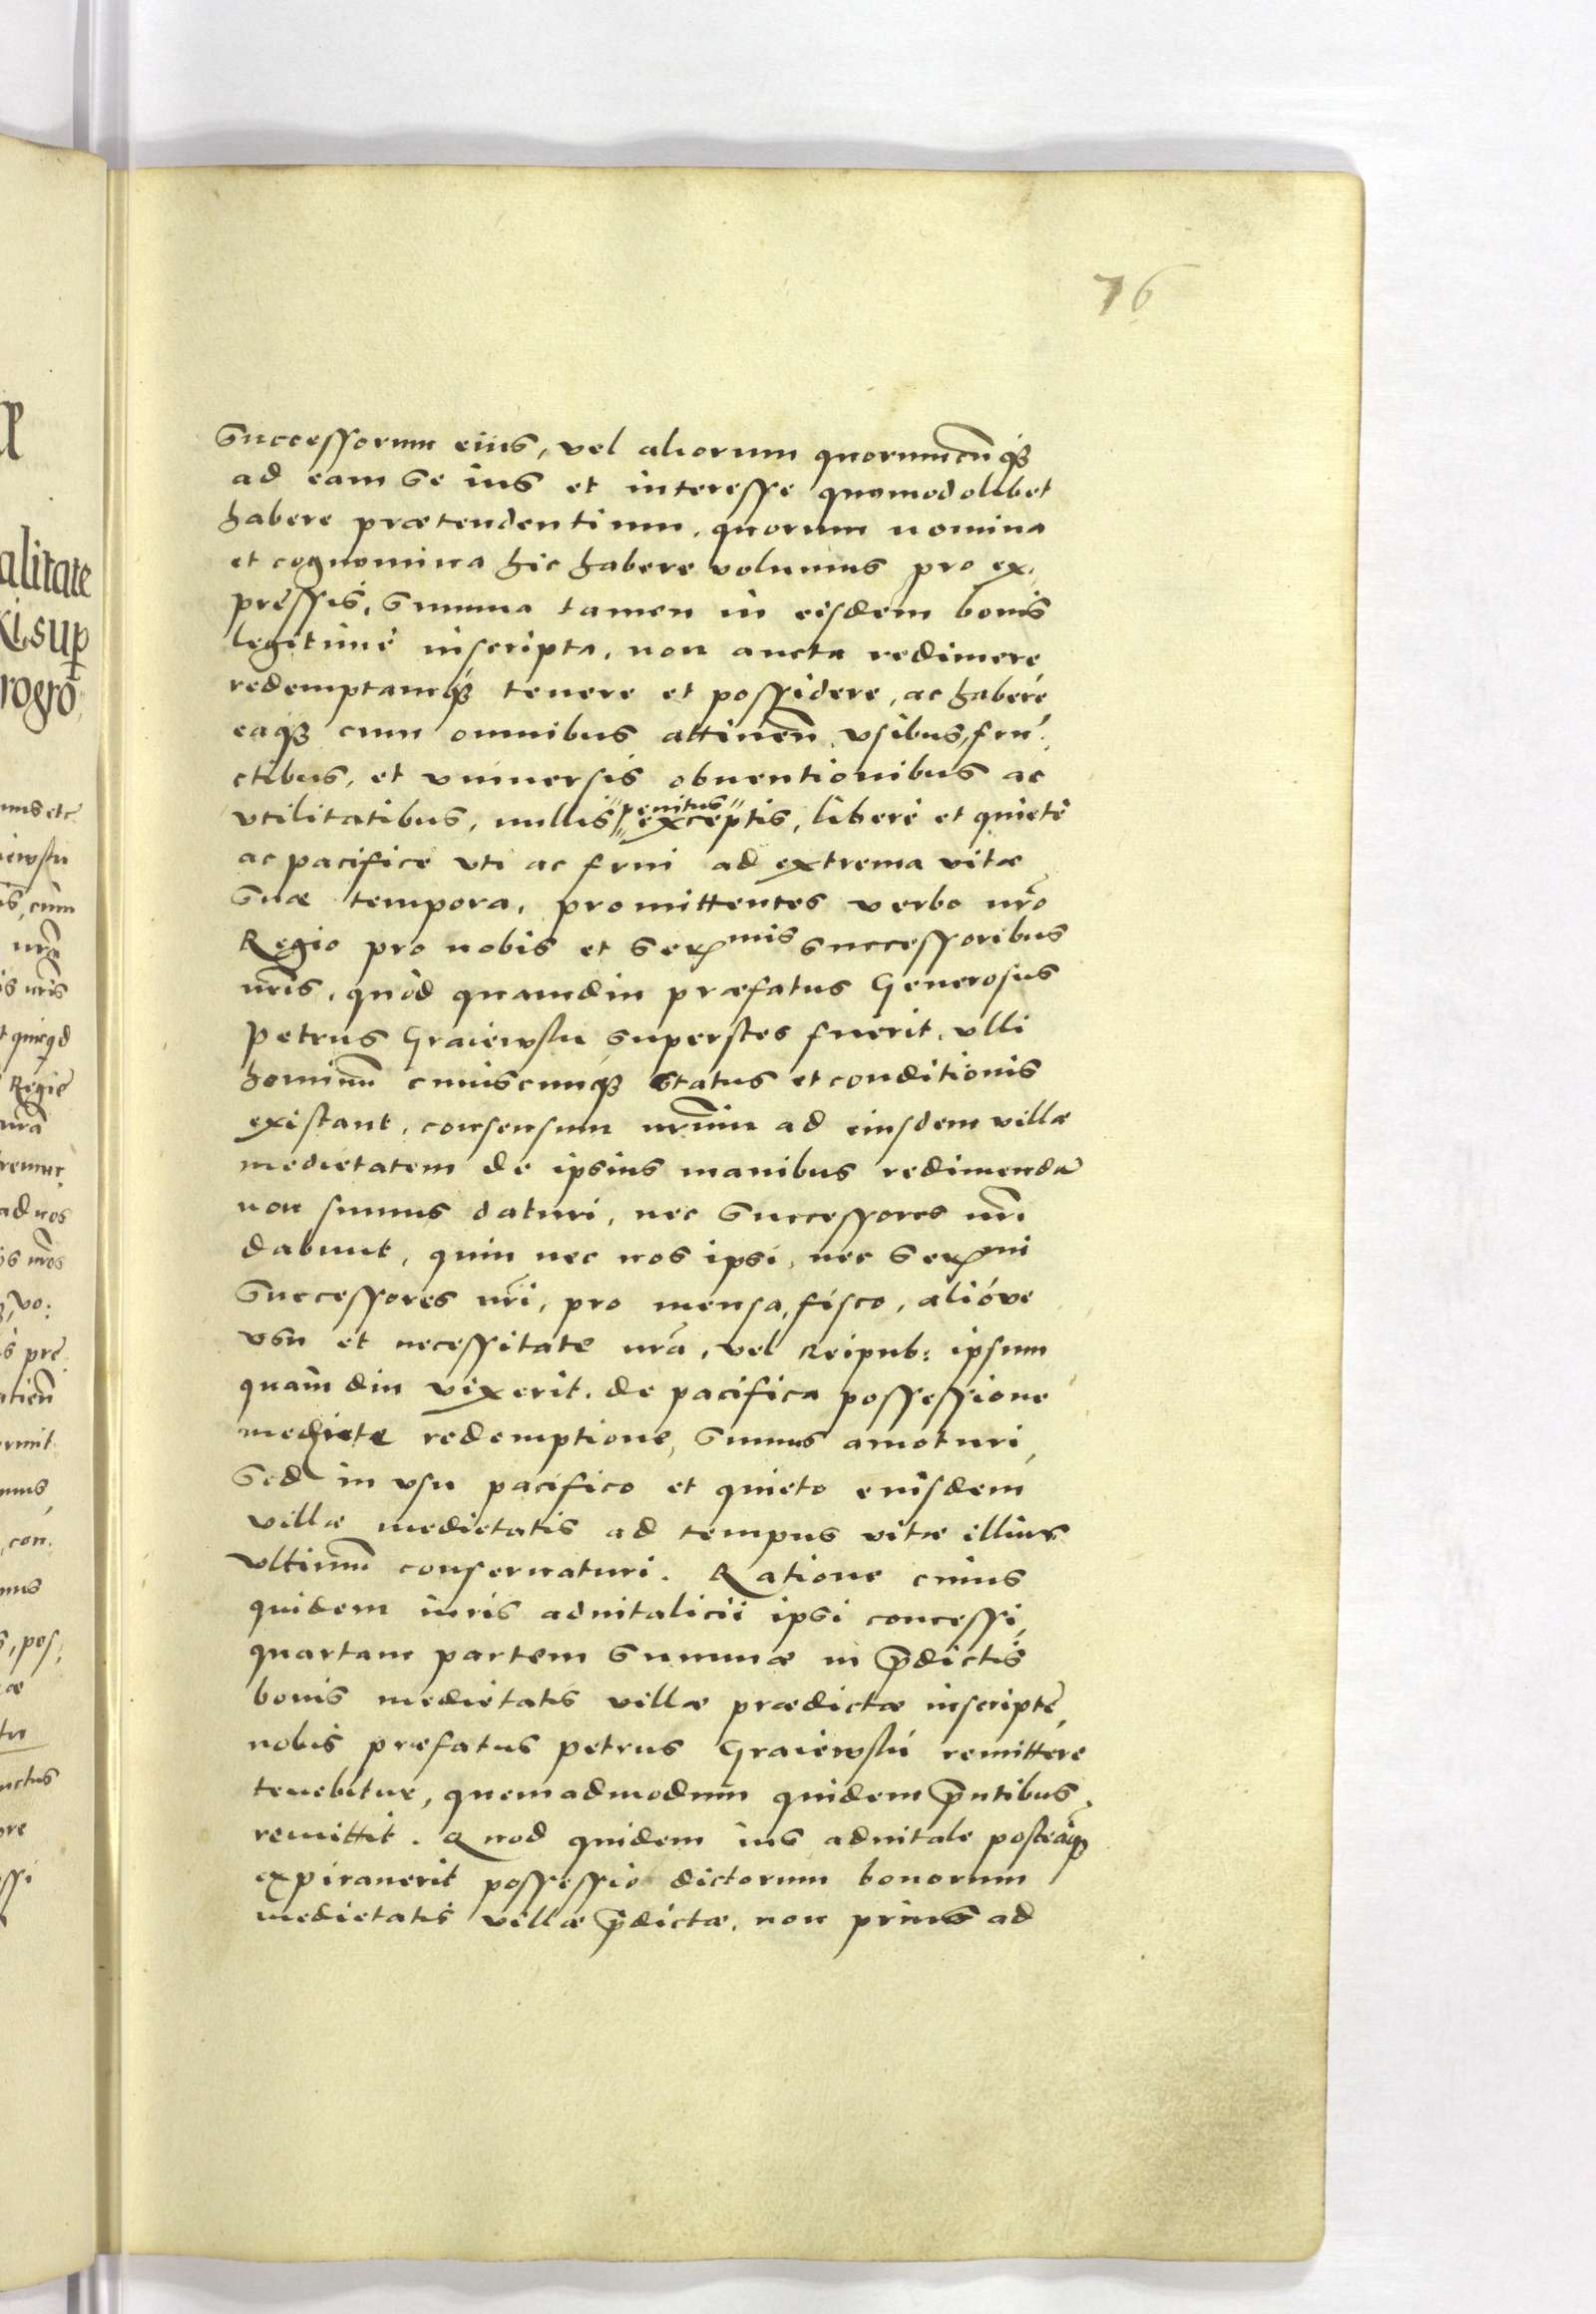 76
Successorum eius, vel aliorum quorumcũq3
ad eam se ius et interesse quomodolibet
habere prætendentium, quorum nomina
et cognomina hic habere volumus pro ex:
pressis, summa tamen in eisdem bonis
legitimè inscripta, non aucta redimere
redemptamq3 tenere et possidere, ac habere
eaq3 cum omnibus attineñ. vsibus, fru:
ctibus, et vniuersis obuentionibus ac
vtilitatibus, nullis penitus exceptis, liberè et quietè
ac pacifice vti ac frui ad extrema vitæ
suæ tempora, promittentes verbo nr̃o
Regio pro nobis et Sermis successoribus
nr̃is, quòd quamdiu præfatus Generosus
Petrus Graiewski superstes fuerit, vlli
hominũ cuiuscunq3 status et conditionis
existant, consensum nr̃um ad eiusdem villæ
medietatem de ipsius manibus redimendã
non sumus daturi, nec Successores nr̃i
dabunt, quin nec nos ipsi, nec Sermi
Successores nr̃i, pro mensa, fisco, alióve
vsu et necessitate nr̃a, vel Reipub: ipsum
quàmdiu vixerit, de pacifica possessione
mediete redemptione, sumus amoturi,
Sed in vsu pacifico et quieto eiusdem
villæ medietatis ad tempus vitæ illius
vltimũ conseruaturi. Ratione cuius
quidem iuris aduitalicii ipsi concessi,
quartam partem summæ in p̃dictis
bonis medietatis villæ prædictæ inscriptę,
nobis præfatus Petrus Graiewski remittere
tenebitur, quemadmodum quidem p̃ntibus
remittit. Quod quidem ius aduitale posteaq̃
expirauerit possessio dictorum bonorum
medietatis villæ p̃dictæ, non prius ad